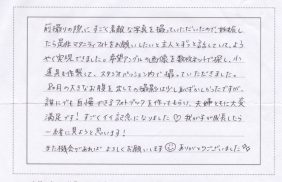 前撮りの際に、すごく素敵な写真を撮っていただいたので、妊娠し
たら是非マタニティフォトをお願いしたいと主人とずっと話していて、よう
やく実現できました。希望アングルの画像を数枚ネットで探し、小
道具も作製して、スタジオがパッション的で撮っていただきました。
8ヶ月の大きなお腹を出しての撮影は少しはずかしかったですが、
誰にでも自慢できるフォトブックを作ってもらい、夫婦ともに大変
満足です！すごくイイ記念になりました♡我が子が成長したら
一緒に見ようと思います！
また機会があれば よろしくお願いします ありがとうございました